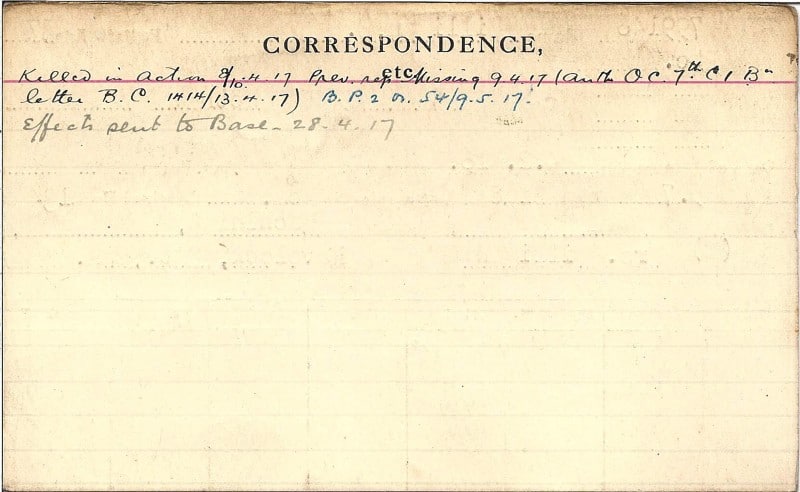 CORRESPONDENCE,
etc.
Killed in action 8/10.4.17 Prev. rep. Missing 9.4.17 (Auth O.C. 7th C I Bn
letter B.C. 1414/13.4.17) B.P.2 Or. 54/9.5.17.
Effects sent to Base - 28.4.17